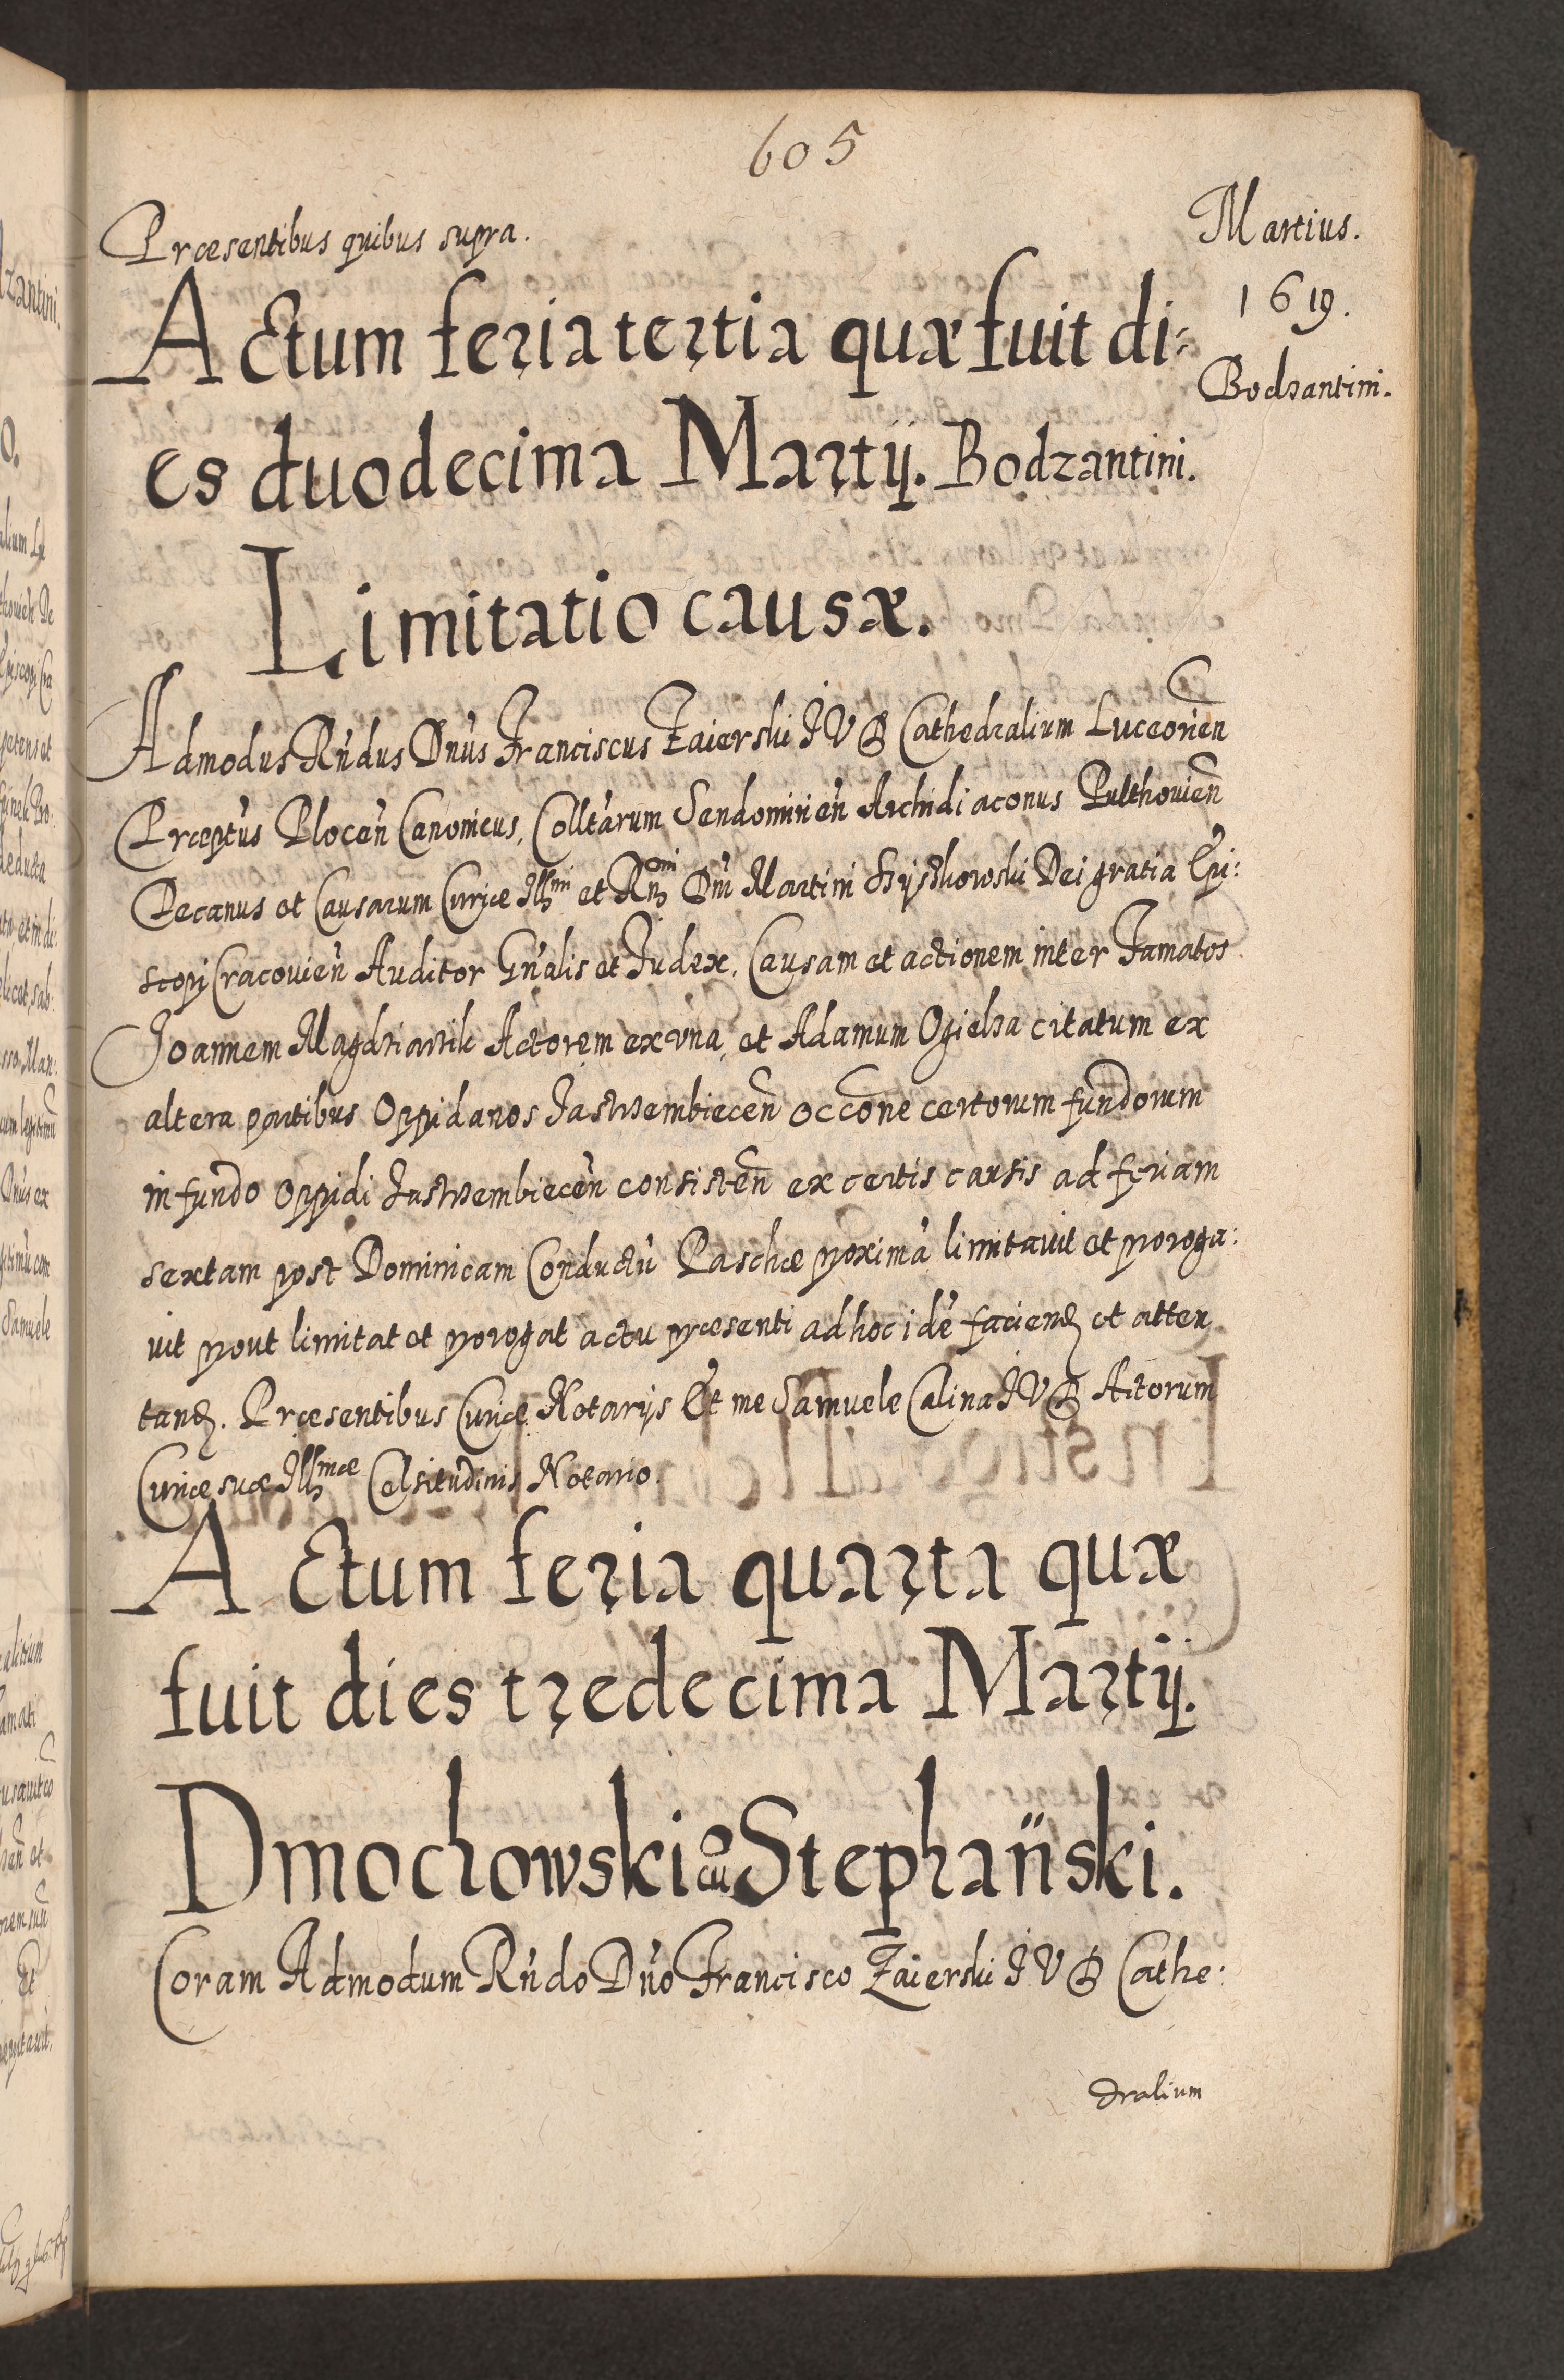 605
Præsentibus quibus supra.
Martius.
1619.
Bodzantini.
Actum feria tertia quæ fuit di=
es duodecima Martij. Bodzantini.
Limitatio causæ.
Admodus Rńdus Dńus Franciscus Zaierski J V D Cathedralium Luceorien̄
Præptus Plocen̄ Canonicus, Colltarum Sendomirien̄ Archidiaconus Pulthouien̄
Decanus et Causarum Curiæ Illmi et Rmi Dni Martini Szyszkowski Dei gratia Epi:
scopi Cracouien̄ Auditor Gńalis et Judex, Causam et actionem inter Famatos
Joannem Actorem ex vna, et Adamum Ogielza citatum ex
altera partibus Oppidanos Jastrzembiecen̄ occōne certorum fundorum
in fundo oppidi Jastrzembiecen̄ consisten̄ ex certis causis ad feriam
sextam post Dominicam Conductū Paschæ proximā limitauit et proroga:
uit prout limitat et prorogat actu præsenti ad hoc idē faciend et atten
tand. Præsentibus Curiæ Notarijs Et me Samuele Calina J V D Actorum
Curiæ suæ Illmæ Celsitudinis Notario.
Actum feria quarta quæ
fuit dies tredecima Martij.
Dmochowski cū Stephański.
Coram Admodum Rńdo Dńo Francisco Zaierski J V D Cathe:
dralium